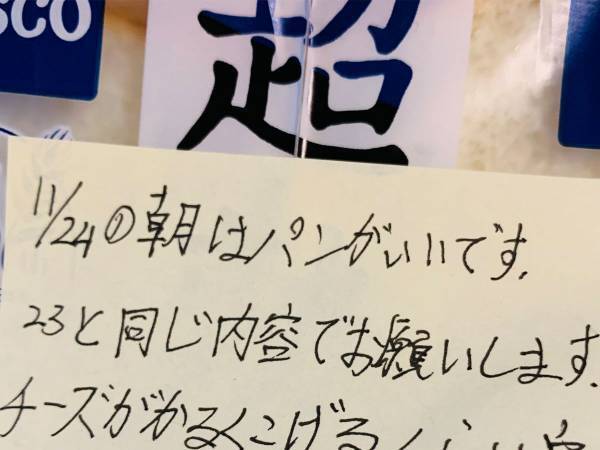 SCO
超
11/24の朝はパンがいいです.
23と同じ内容でお願いします.
チーズがかるくこげるくらい